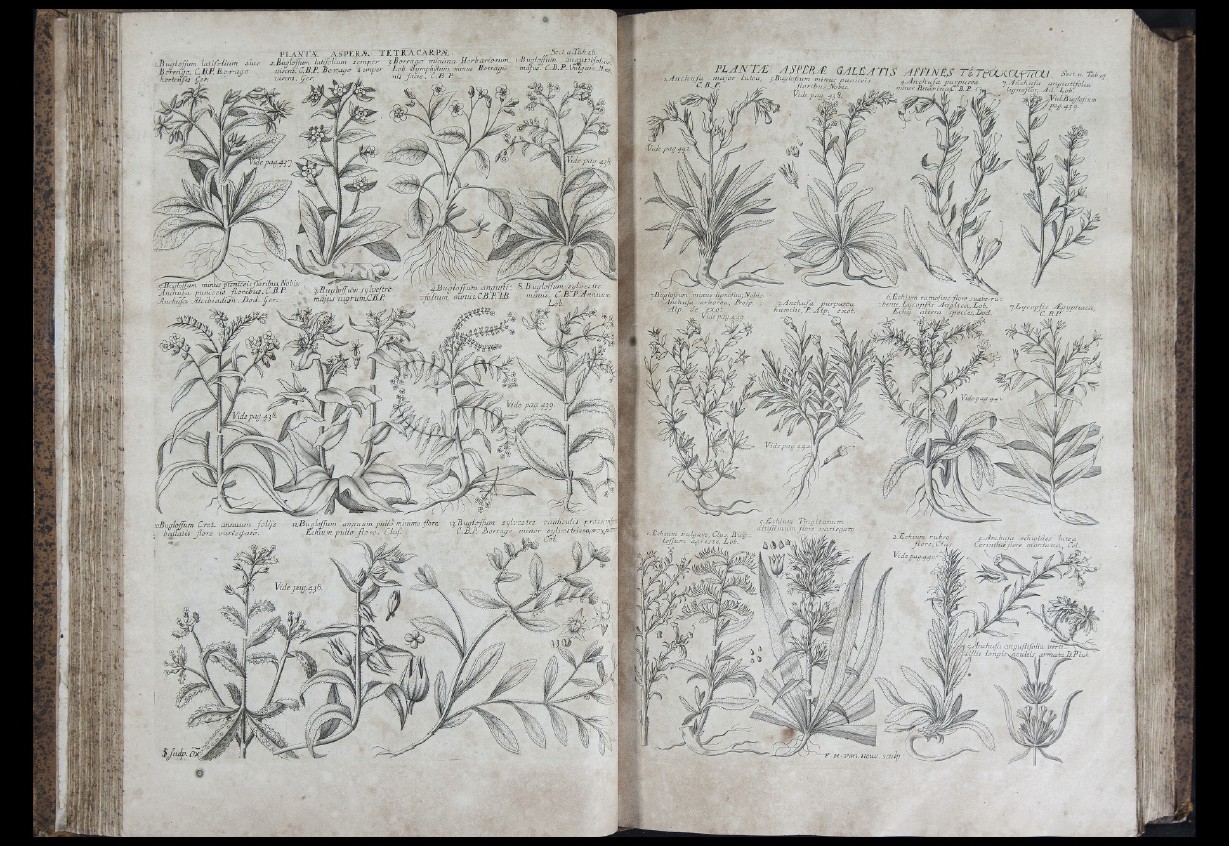 PLANTÆ ASPERÆ TETRACARPÆ
Sect. 11. Tab. 26.
1. Buglossum latifolium sive
Borrago. C.B.P. Borrago
hortensis Ger.
2. Buglossum latifolium semper
virens. C.B.P. Borago semper
virens. Ger.
3. Borrago minima Herbariorum
Lob. Symphytum minus Borragi-
nis facie. C.B.P.
1. Buglossum angustifolium
majus. C.B.P. Vulgare
Vide pag. 437
Vide pag. 438
2. Buglossum minus
floribus. Nobis
Anchusa puniceis floribus. C.B.P.
Anchusa Alcibiadion. Dod. Ger.
3. Buglossum sylvestre
majus nigrum. C.B.P.
4. Buglossum angusti-
folium minus C.B.P. I.B.
8. Buglossum sylvestre
minus. C.B.P. Annuum
Lob.
Vide pag. 438.
Vide pag. 439.
10. Buglossum Cret. annuum foliis
bullatis flore variegato.
11. Buglossum annuum pullo minimo flore
Echium pullo flore. Clus.
12. Buglossum sylvestre cauliculis procumb
C.B.P. Borrago minor sylvestris
Col.
Vide pag. 436.
S. sculp. Ox.
PLANTÆ ASPERÆ GALEATIS AFFINES
Sect. 11. Tab. 27
1. Anchusa major lutea,
C.B.P.
3. Buglossum minus puniceis
floribus. Nobis.
Vide pag. 438.
4. Anchusa purpurea
minor
7. Anchusa angustifolia
lignosior. Ad. Lob.
Vid. Buglossum
pag. 439
Vide pag. 442
7. Buglossum minus lignosius Nobis
Anchusa arborea, Prosp.
Alp. de exot.
Vide pag. 439
2. Anchusa purpurea
humilis, P. Alp. exot.
6. Echium ramosius flore suave-ru-
bente. Lycopsis Anglica. Lob.
Echii altera species Dod.
7. Lycopsis Ægyptiaca,
C.B.P.
Vide pag. 442
Vide pag. 44
1. Echium vulgare, Clus. Bug-
lossum agreste Lob.
5. Echium Tingitanum
altissimum flore variegato
2. Echium rubro
flore, Clus.
Anchusa echioides lutea
Cerinthe flore montana, Col.
Vide pag. 442
Anchusa angustifolia verti-
cillis longis aculeis armata D. Pluk.
F. H. van. Houe. sculp